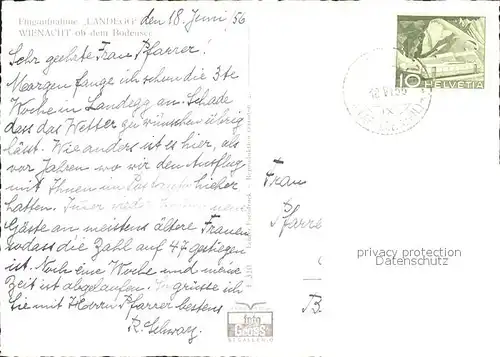 Flugaufnahme „LANDEGG"
WIENACHT ob dem Bodensee
den 18. Juni 56
Sehr geehrte Frau Pfarrer!
Morgen fange ich schon die 3te
Woche in Landegg an. Schade
dass das Wetter zu wünschen übrig
lässt. Wie anders ist es hier, als
vor Jahren wo wir den Ausflug
mit Ihnen im hieher
hatten. Immer wieder neue
Gäste an meistens ältere Frauen
sodass die Zahl auf 47 gestiegen
ist. Noch eine Woche und meine
Zeit ist abgelaufen. So grüsse ich
Sie mit Herrn Pfarrer bestens
R. Schwarz.
10 HELVETIA
18.VI.56
Frau
Pfarre
B
foto
GROSS
ST.GALLEN
privacy protection
Datenschutz